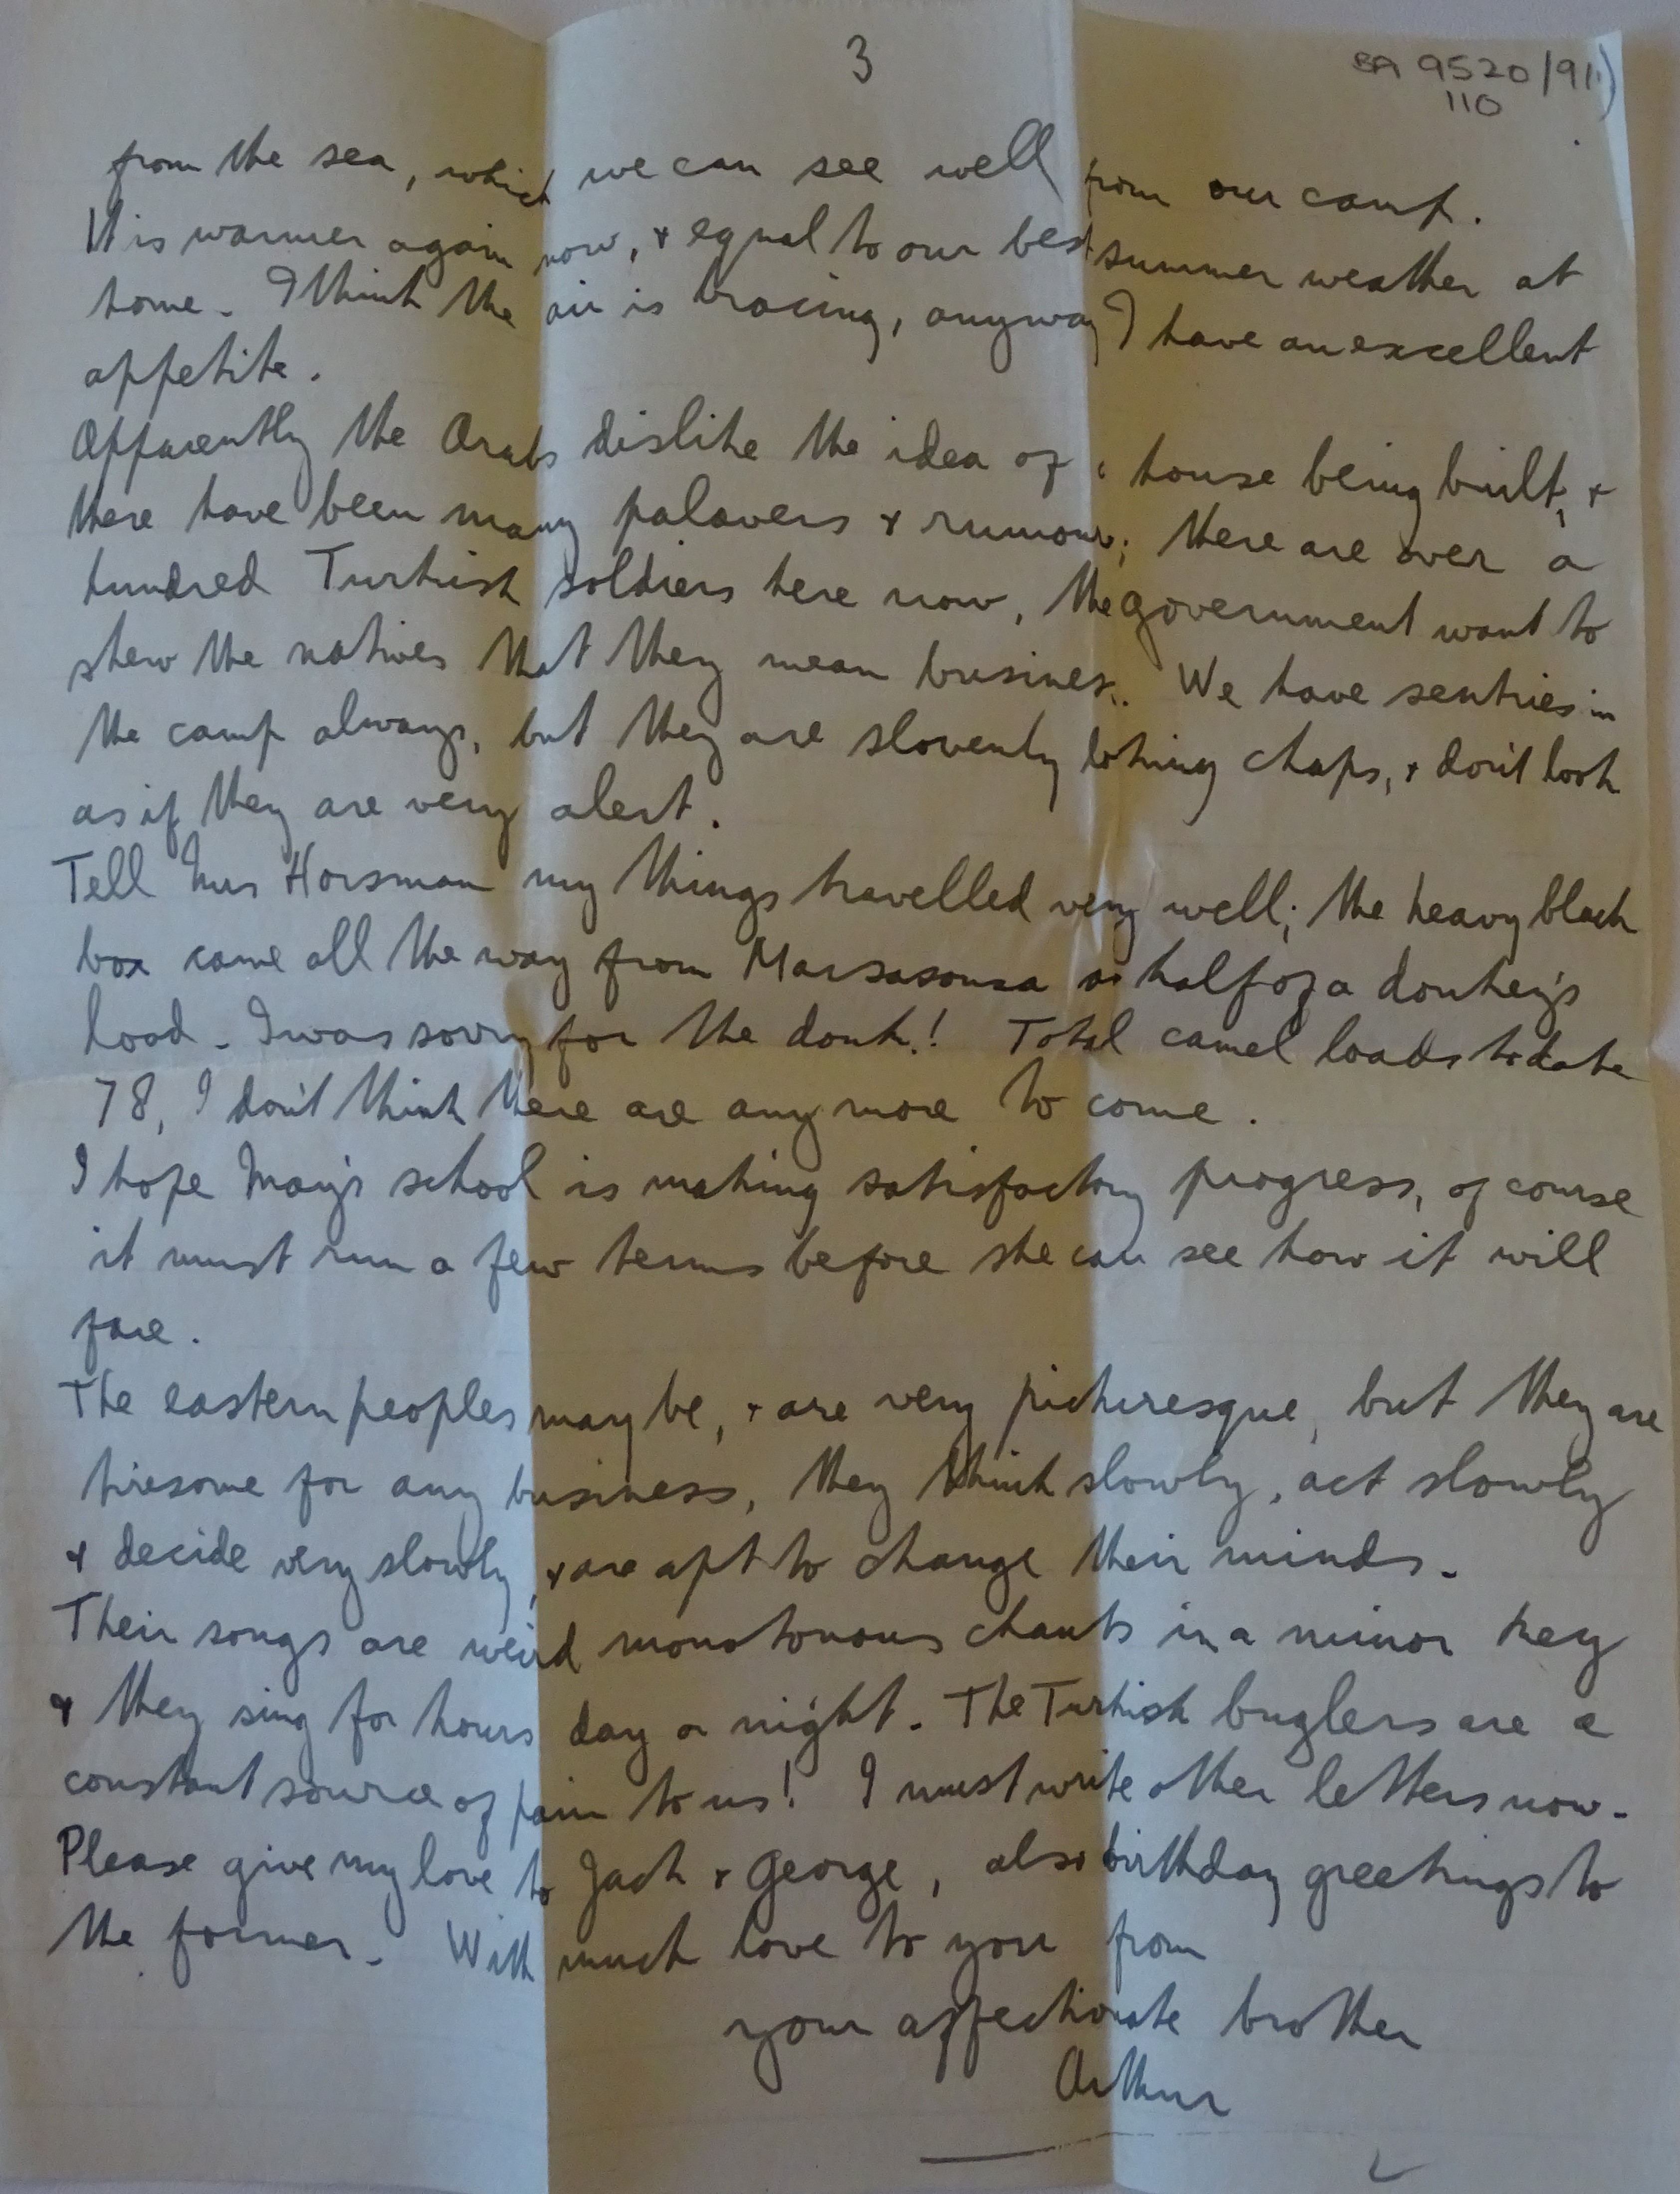 3
BA 9520/9(1)
110
from the sea, which we can see well from our camp.
It is warmer again now, & equal to our best summer weather at
home. I think the air is bracing, anyway I have an excellent
appetite.
Apparently the Arabs dislike the idea of a house being built, &
there have been many palavers & rumours; there are over a
hundred Turkish soldiers here now, the government want to
shew the natives that they mean business. We have sentries in
the camp always, but they are slovenly looking chaps, & don't look
as if they are very alert.
Tell Mrs Horsman my things travelled very well; the heavy black
box came all the way from Marsasousa as half of a donkey's
load. I was sorry for the donk.! Total camel loads to date
78, I don't think there are any more to come.
I hope May's school is making satisfactory progress, of course
it must run a few terms before she can see how it will
fare.
The eastern peoples may be, & are very picturesque, but they are
tiresome for any business, they think slowly, act slowly
& decide very slowly, & are apt to change their minds.
Their songs are weird monotonous chants in a minor key
& they sing for hours day or night. The Turkish buglers are a
constant source of pain to us! I must write other letters now.
Please give my love to Jack & George, also birthday greetings to
the former. With much love to you from
your affectionate brother
Arthur